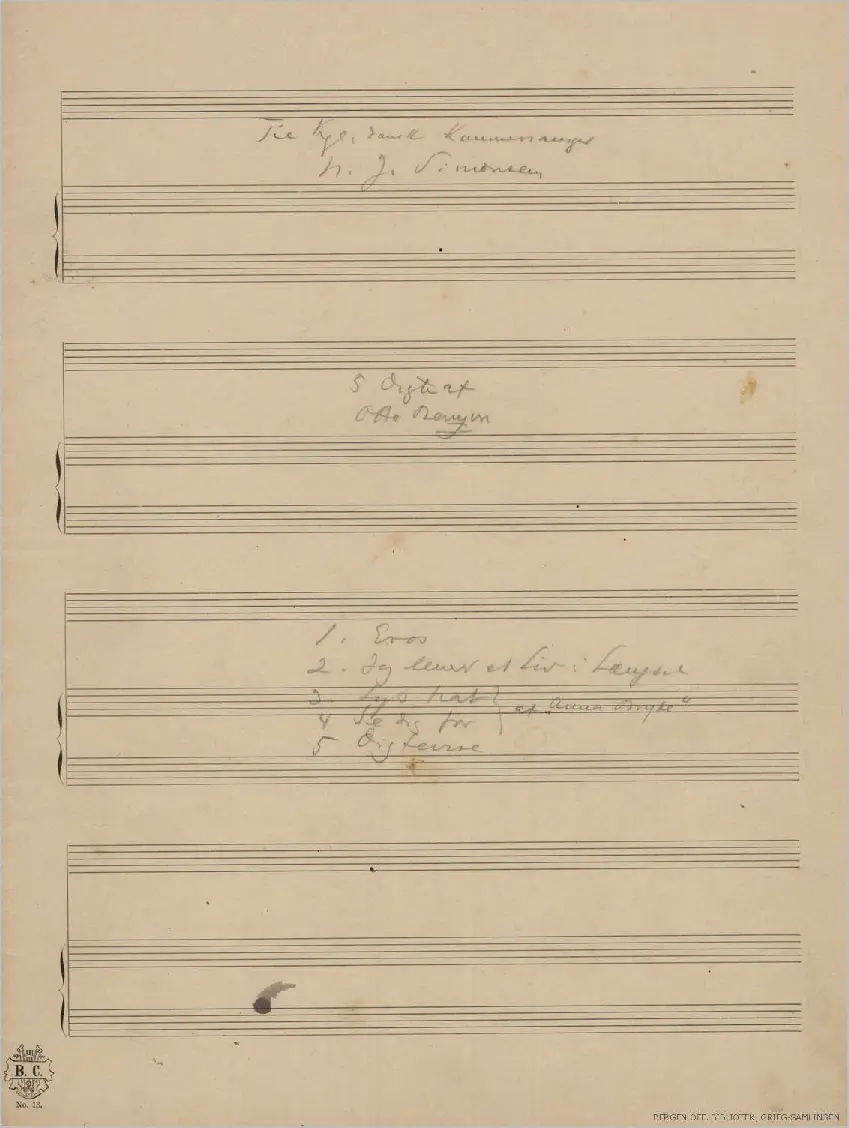 Til Kgl. dansk Kammersanger
N. J. Simonsen
5 Digte af
Otto Benzon
1. Eros
2. Jeg lever et Liv i Længsel
3. Lys Nat
4 Se dig for
af "Anna Drejde"
5 Digtervise
B. C.
No. 13.
BERGEN OFF. BIBLIOTEK, GRIEG-SAMLINGEN